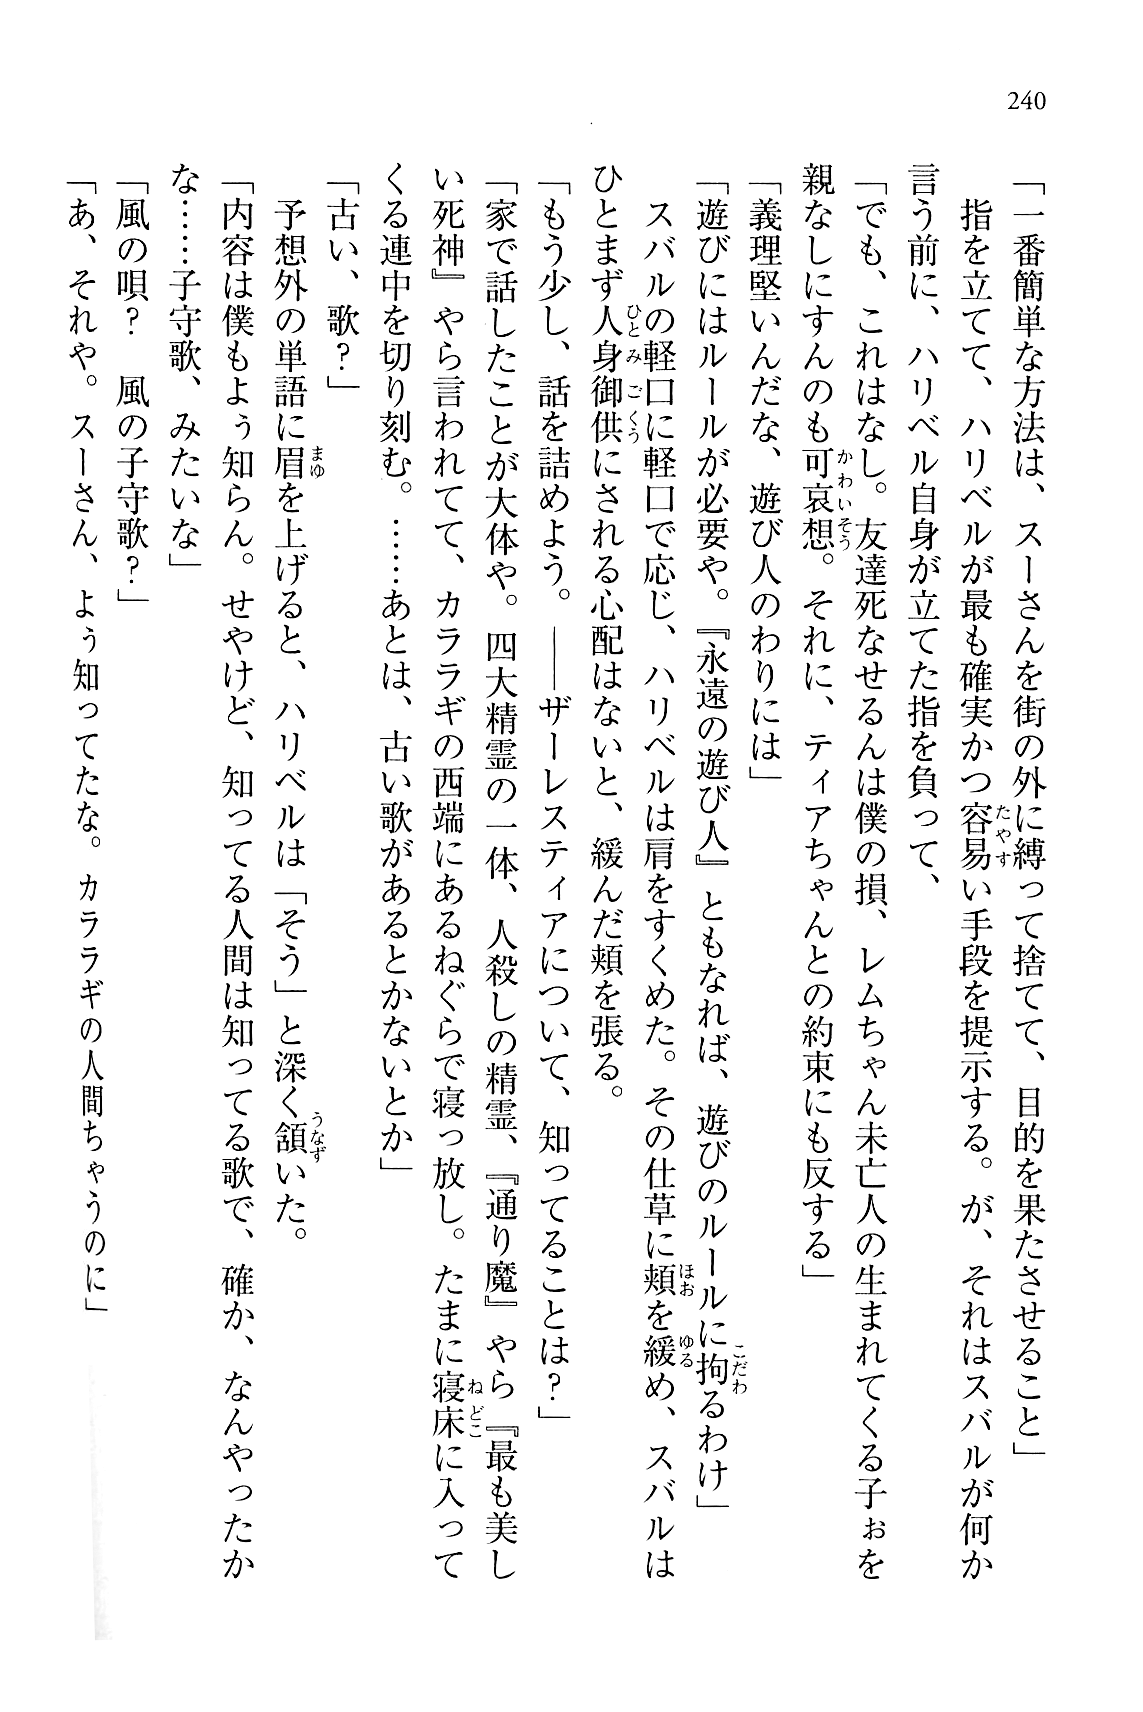 240
「一番簡単な方法は、スーさんを街の外に縛って捨てて、目的を果たさせること」
指を立てて、ハリベルが最も確実かつ容易い手段を提示する。が、それはスバルが何か
言う前に、ハリベル自身が立てた指を負って、
「でも、これはなし。友達死なせるんは僕の損、レムちゃん未亡人の生まれてくる子ぉを
親なしにすんのも可哀想。それに、ティアちゃんとの約束にも反する」
「義理堅いんだな、遊び人のわりには」
「遊びにはルールが必要や。『永遠の遊び人』ともなれば、遊びのルールに拘るわけ」
スバルの軽口に軽口で応じ、ハリベルは肩をすくめた。その仕草に頬を緩め、スバルは
ひとまず人身御供にされる心配はないと、緩んだ頬を張る。
「もう少し、話を詰めよう。――ザーレスティアについて、知ってることは？」
「家で話したことが大体や。四大精霊の一体、人殺しの精霊、『通り魔』やら『最も美し
い死神』やら言われてて、カララギの西端にあるねぐらで寝っ放し。たまに寝床に入って
くる連中を切り刻む。……あとは、古い歌があるとかないとか」
「古い、歌？」
予想外の単語に眉を上げると、ハリベルは「そう」と深く頷いた。
「内容は僕もよぅ知らん。せやけど、知ってる人間は知ってる歌で、確か、なんやったか
な……子守歌、みたいな」
「風の唄？　風の子守歌？」
「あ、それや。スーさん、よぅ知ってたな。カララギの人間ちゃうのに」